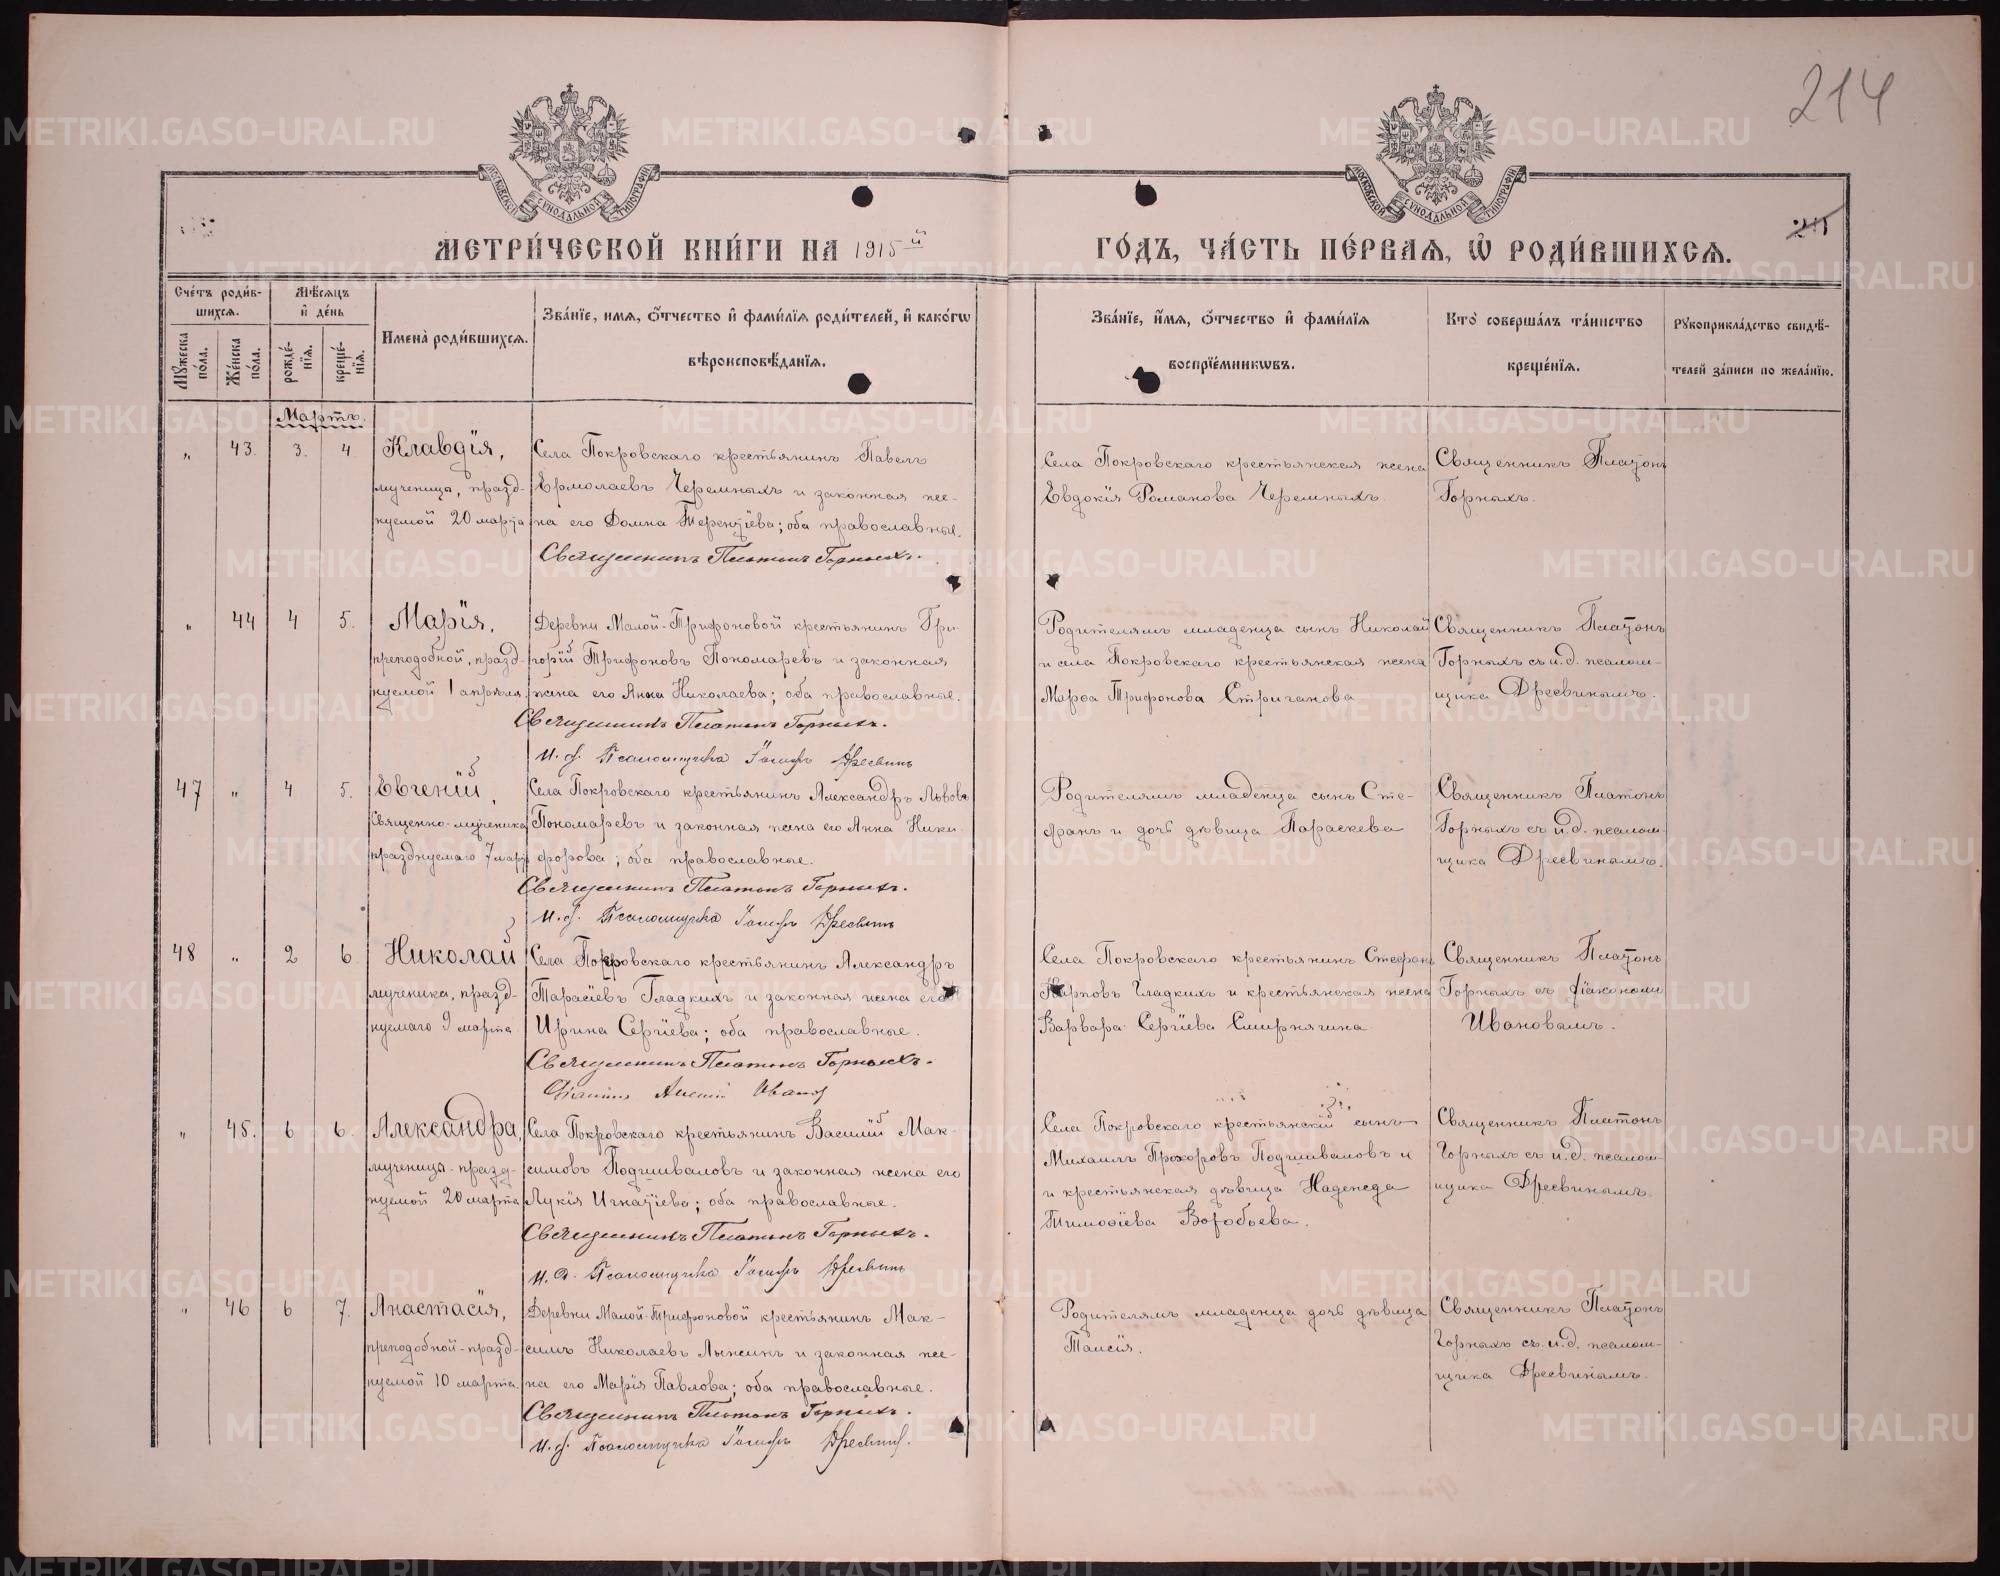 214
МОСКОВСКОЙ СѴНОДАЛЬНОЙ ТИПОГРАФІИ
МОСКОВСКОЙ СѴНОДАЛЬНОЙ ТИПОГРАФІИ
МЕТРИ́ЧЕСКОЙ КНИ́ГИ НА 1915й
ГО́ДЪ, ЧА́СТЬ ПЕ́РВАѦ, Ѡ҆ РОДИ́ВШИХСѦ.
Сче́тъ роди́вшихсѧ.
Мѣ́сѧцъ и҆ де́нь
Мꙋ́жеска по́ла.
Же́нска по́ла.
рожде́нїѧ.
креще́нїѧ.
Имена̀ роди́вшихсѧ.
Зва́нїе, имѧ, ѻ҆́тчество и҆ фамі́лїѧ роди́телей, и҆ како́гѡ
вѣроисповѣ́данїѧ.
Зва́нїе, и҆́мѧ, ѻ҆́тчество и҆ фамі́лїѧ
воспрїе́мникѡвъ.
Кто̀ соверша́лъ та́инство
креще́нїѧ.
Рꙋкоприкла́дство свидѣ́-
телей за́писи по жела́нїю.
Мартъ.
„ 43. 3. 4. Клавдія,
мученицы, празд-
нуемой 20 марта
Села Покровскаго крестьянинъ Павелъ
Ермолаевъ Черемныхъ и законная же-
на его Домна Терентіева; оба православные.
Священникъ Платонъ Горныхъ.
Села Покровскаго крестьянская жена
Евдокія Романова Черемныхъ.
Священникъ Платонъ
Горныхъ.
„ 44 4 5. Марія,
преподобной, празд-
нуемой 1 апрѣля.
Деревни Малой-Трифоновой крестьянинъ Гри-
горій Трифоновъ Пономаревъ и законная
жена его Анна Николаева; оба православные.
Священникъ Платонъ Горныхъ.
И. д. Псаломщика Іосифъ Дресвинъ
Родителямъ младенца сынъ Николай
и села Покровскаго крестьянская жена
Марѳа Трифонова Стриганова
Священникъ Платонъ
Горныхъ съ и.д. псалом-
щика Дресвинымъ.
47 „ 4 5. Евгеній,
Священно-мученика
празднуемаго 7 марта
Села Покровскаго крестьянинъ Александръ Львовъ
Пономаревъ и законная жена его Анна Ники-
форова; оба православные.
Священникъ Платонъ Горныхъ.
И. д. Псаломщика Іосифъ Дресвинъ
Родителямъ младенца сынъ Сте-
фанъ и дочь дѣвица Параскева
Священникъ Платонъ
Горныхъ съ и.д. псалом-
щика Дресвинымъ.
48 „ 2 6 Николай
мученика, празд-
нуемаго 9 марта
Села Покровскаго крестьянинъ Александръ
Тарасіевъ Гладкихъ и законная жена его
Ирина Сергіева; оба православные.
Священникъ Платонъ Горныхъ.
Діаконъ Ивановъ
Села Покровскаго крестьянинъ Стефанъ
Карповъ Гладкихъ и крестьянская жена
Варвара Сергіева Смирнягина
Священникъ Платонъ
Горныхъ съ діакономъ
Ивановымъ.
„ 45. 6 6. Александра,
мученицы-празд-
нуемой 20 марта
Села Покровскаго крестьянинъ Василій Мак-
симовъ Подшиваловъ и законная жена его
Лукія Игнатіева; оба православные.
Священникъ Платонъ Горныхъ.
И. д. Псаломщика Іосифъ Дресвинъ
Села Покровскаго крестьянскій сынъ
Михаилъ Прохоровъ Подшиваловъ и
и крестьянская дѣвица Надежда
Тимоѳіева Воробьева.
Священникъ Платонъ
Горныхъ съ и.д. псалом-
щика Дресвинымъ.
„ 46 6 7. Анастасія,
преподобной-празд-
нуемой 10 марта.
Деревни Малой-Трифоновой крестьянинъ Мак-
симъ Николаевъ Лыжинъ и законная же-
на его Марія Павлова; оба православные.
Священникъ Платонъ Горныхъ.
И. д. Псаломщика Іосифъ Дресвинъ.
Родителямъ младенца дочь дѣвица
Таисія.
Священникъ Платонъ
Горныхъ съ и.д. псалом-
щика Дресвинымъ.
METRIKI.GASO-URAL.RU